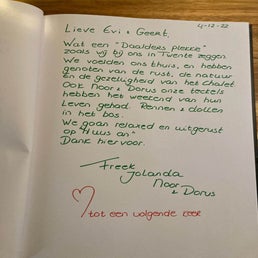 4-12-22
Lieve Evi & Geert,
Wat een "Daalders plekke"
zoals wij bij ons in Twente zeggen.
We voelden ons thuis, en hebben
genoten van de rust, de natuur
en de gezelligheid van het chalet
Ook Noor & Dorus onze teckels
hebben het weekend van hun
Leven gehad. Rennen & dollen
in het bos.
We gaan relaxed en uitgerust
op "Huus an"
Dank hiervoor.
Freek
Jolanda
Noor
& Dorus
tot een volgende keer